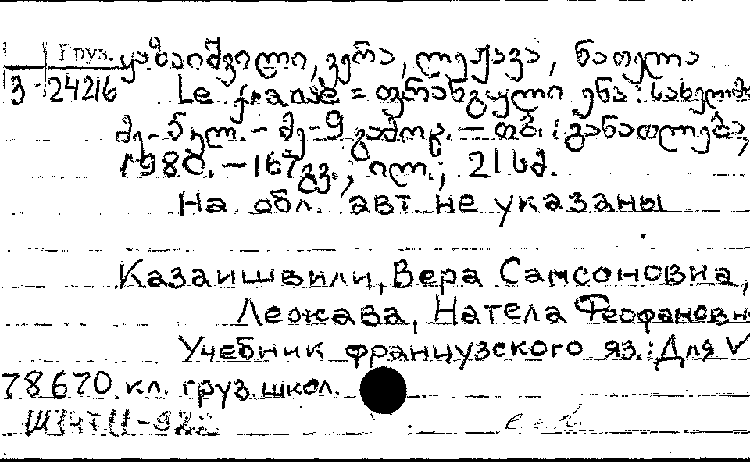 Груз. ყაზაიშვილი, ვერა, ლეჟავა, ნათელა
3-24216 Le français = ფრანგული ენა : სახელმძ
მე-5 კლ. - მე-9 გამოც. - თბ. : განათლება,
1980. - 167გვ., ილ.; 21 სმ.
На обл. авт. не указаны
Казаишвили, Вера Самсоновна,
Лежава, Натела Феофановн
Учебник французского яз.: Для V
78670 кл. груз. школ.